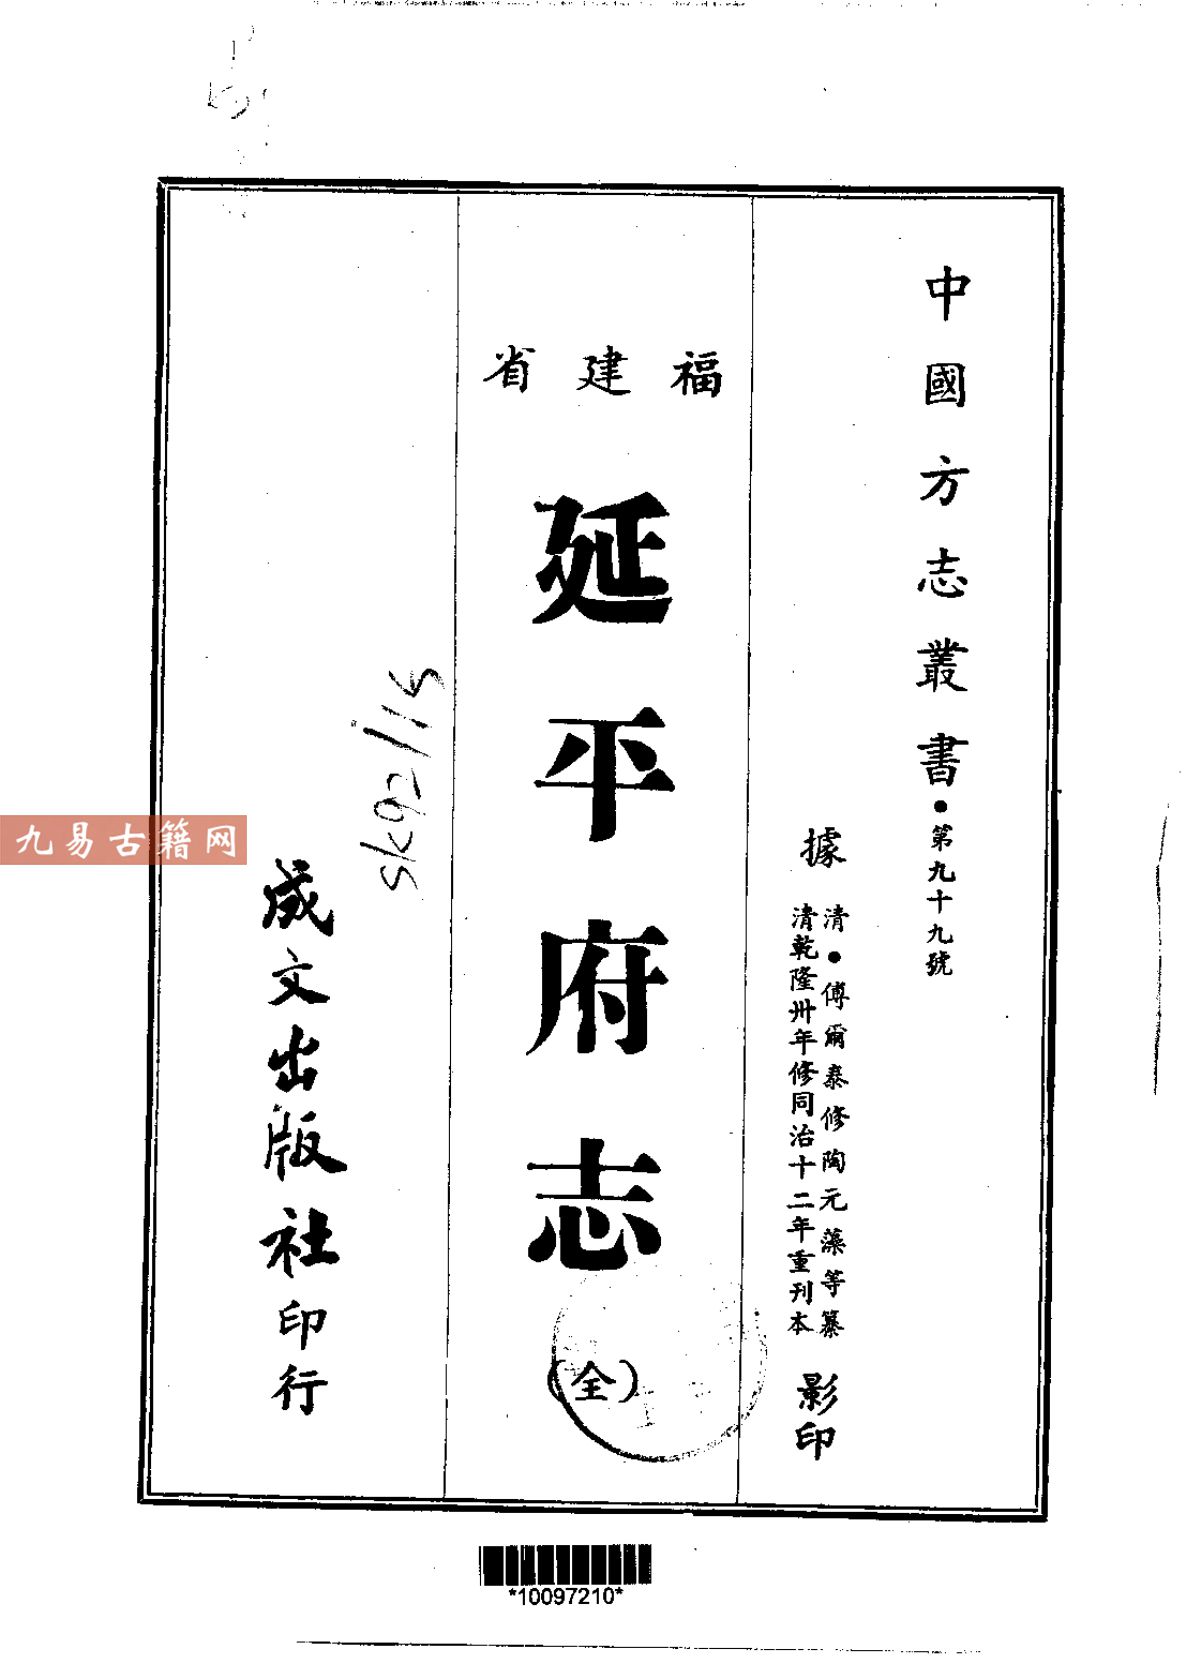 中國方志叢書·第九十九號
據
清·傅爾泰修陶元藻等纂
清乾隆卅年修同治十二年重刊本
影印
福建省
延平府志
(全)
sk92/115
成文出版社印行
九易古籍网
*10097210*